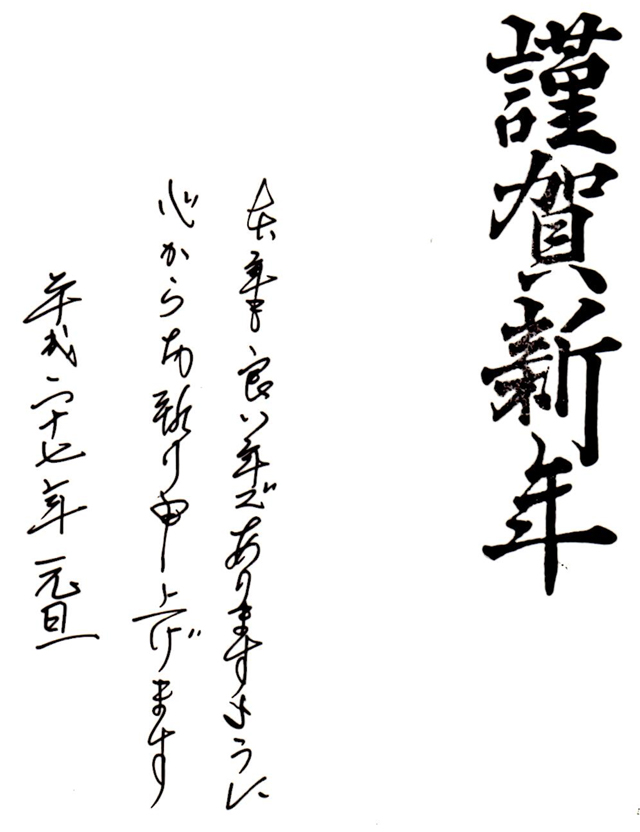 謹賀新年
本年も良い年でありますように
心からお祈り申し上げます
平成二十七年 元旦